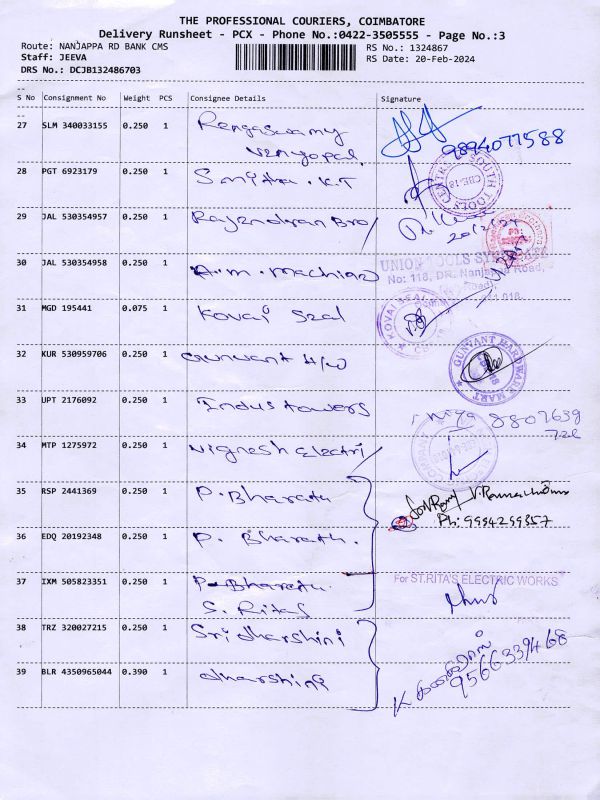 THE PROFESSIONAL COURIERS, COIMBATORE
Delivery Runsheet - PCX - Phone No.:0422-3505555 - Page No.:3
Route: NANJAPPA RD BANK CMS
RS No.: 1324867
Staff: JEEVA
RS Date: 20-Feb-2024
DRS No.: DCJB132486703
--
S No Consignment No Weight PCS Consignee Details Signature
--
27 SLM 340033155 0.250 1 Rengaswamy
Venugopal
9894077588
28 PGT 6923179 0.250 1 Smitha. K.T
SOUTH TOOLS CENTRE
CBE-18
29 JAL 530354957 0.250 1 Rajendran Bro/
20/2/24
30 JAL 530354958 0.250 1 A.m. machine
UNION TOOLS SYNDICATE
No: 118, DR. Nanjappa Road,
31 MGD 195441 0.075 1 Kovai Seal
KOVAI SEAL
32 KUR 530959706 0.250 1 Gunvant H/w
GUNVANT HARDWARE MART
33 UPT 2176092 0.250 1 Indus towers
8807639
722
34 MTP 1275972 0.250 1 Vignesh Electri/
35 RSP 2441369 0.250 1 P. Bharath
Ph: 9994259357
36 EDQ 20192348 0.250 1 P. Bharath.
37 IXM 505823351 0.250 1 P. Bharath.
S. Ritas
For ST.RITA'S ELECTRIC WORKS
38 TRZ 320027215 0.250 1 Sri dharshini
39 BLR 4350965044 0.390 1 dharshini
9566339468